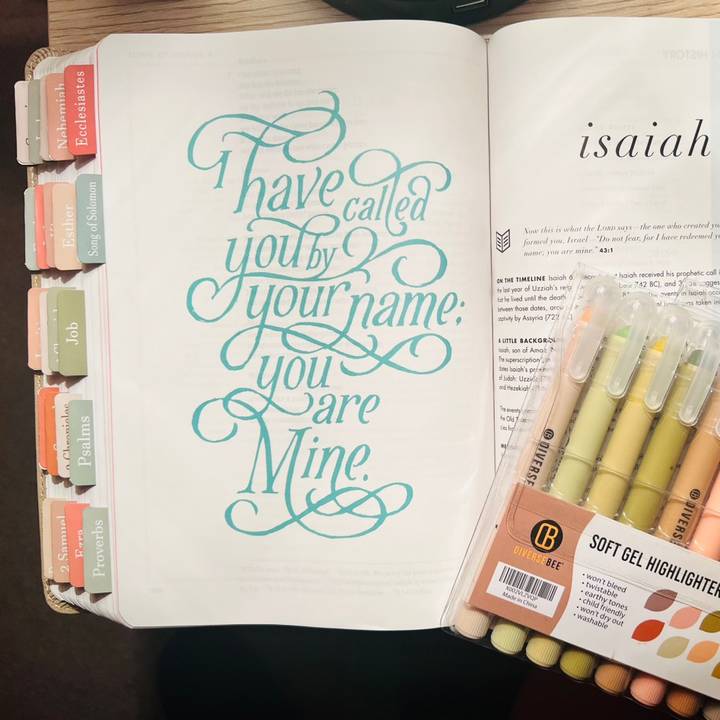 Ecclesiastes
Nehemiah
Song of Solomon
Esther
Job
Psalms
2 Chronicles
Proverbs
Ezra
2 Samuel
I have called
you by
your name;
you
are
Mine.
HISTORY
isaiah
Now this is what the LORD says—the one who created you
formed you, Israel—"Do not fear, for I have redeemed you
name; you are mine." 43:1
ON THE TIMELINE Isaiah 6 Isaiah received his prophetic call i
the last year of Uzziah's (742 BC), and 37:38 sugges
that he lived until the death
between those dates,
activity by Assyria (722
A LITTLE BACKGROUND
Isaiah, son of Amoz
superscription"
dates Isaiah's
of Judah: Uzziah
and Hezekiah
The events
the Old
DIVERSE
DIVERSE
DIVERSEBEE
SOFT GEL HIGHLIGHTER
• won't bleed
• twistable
• earthy tones
• child friendly
• won't dry out
• washable
X002VLZVQP
Made in China